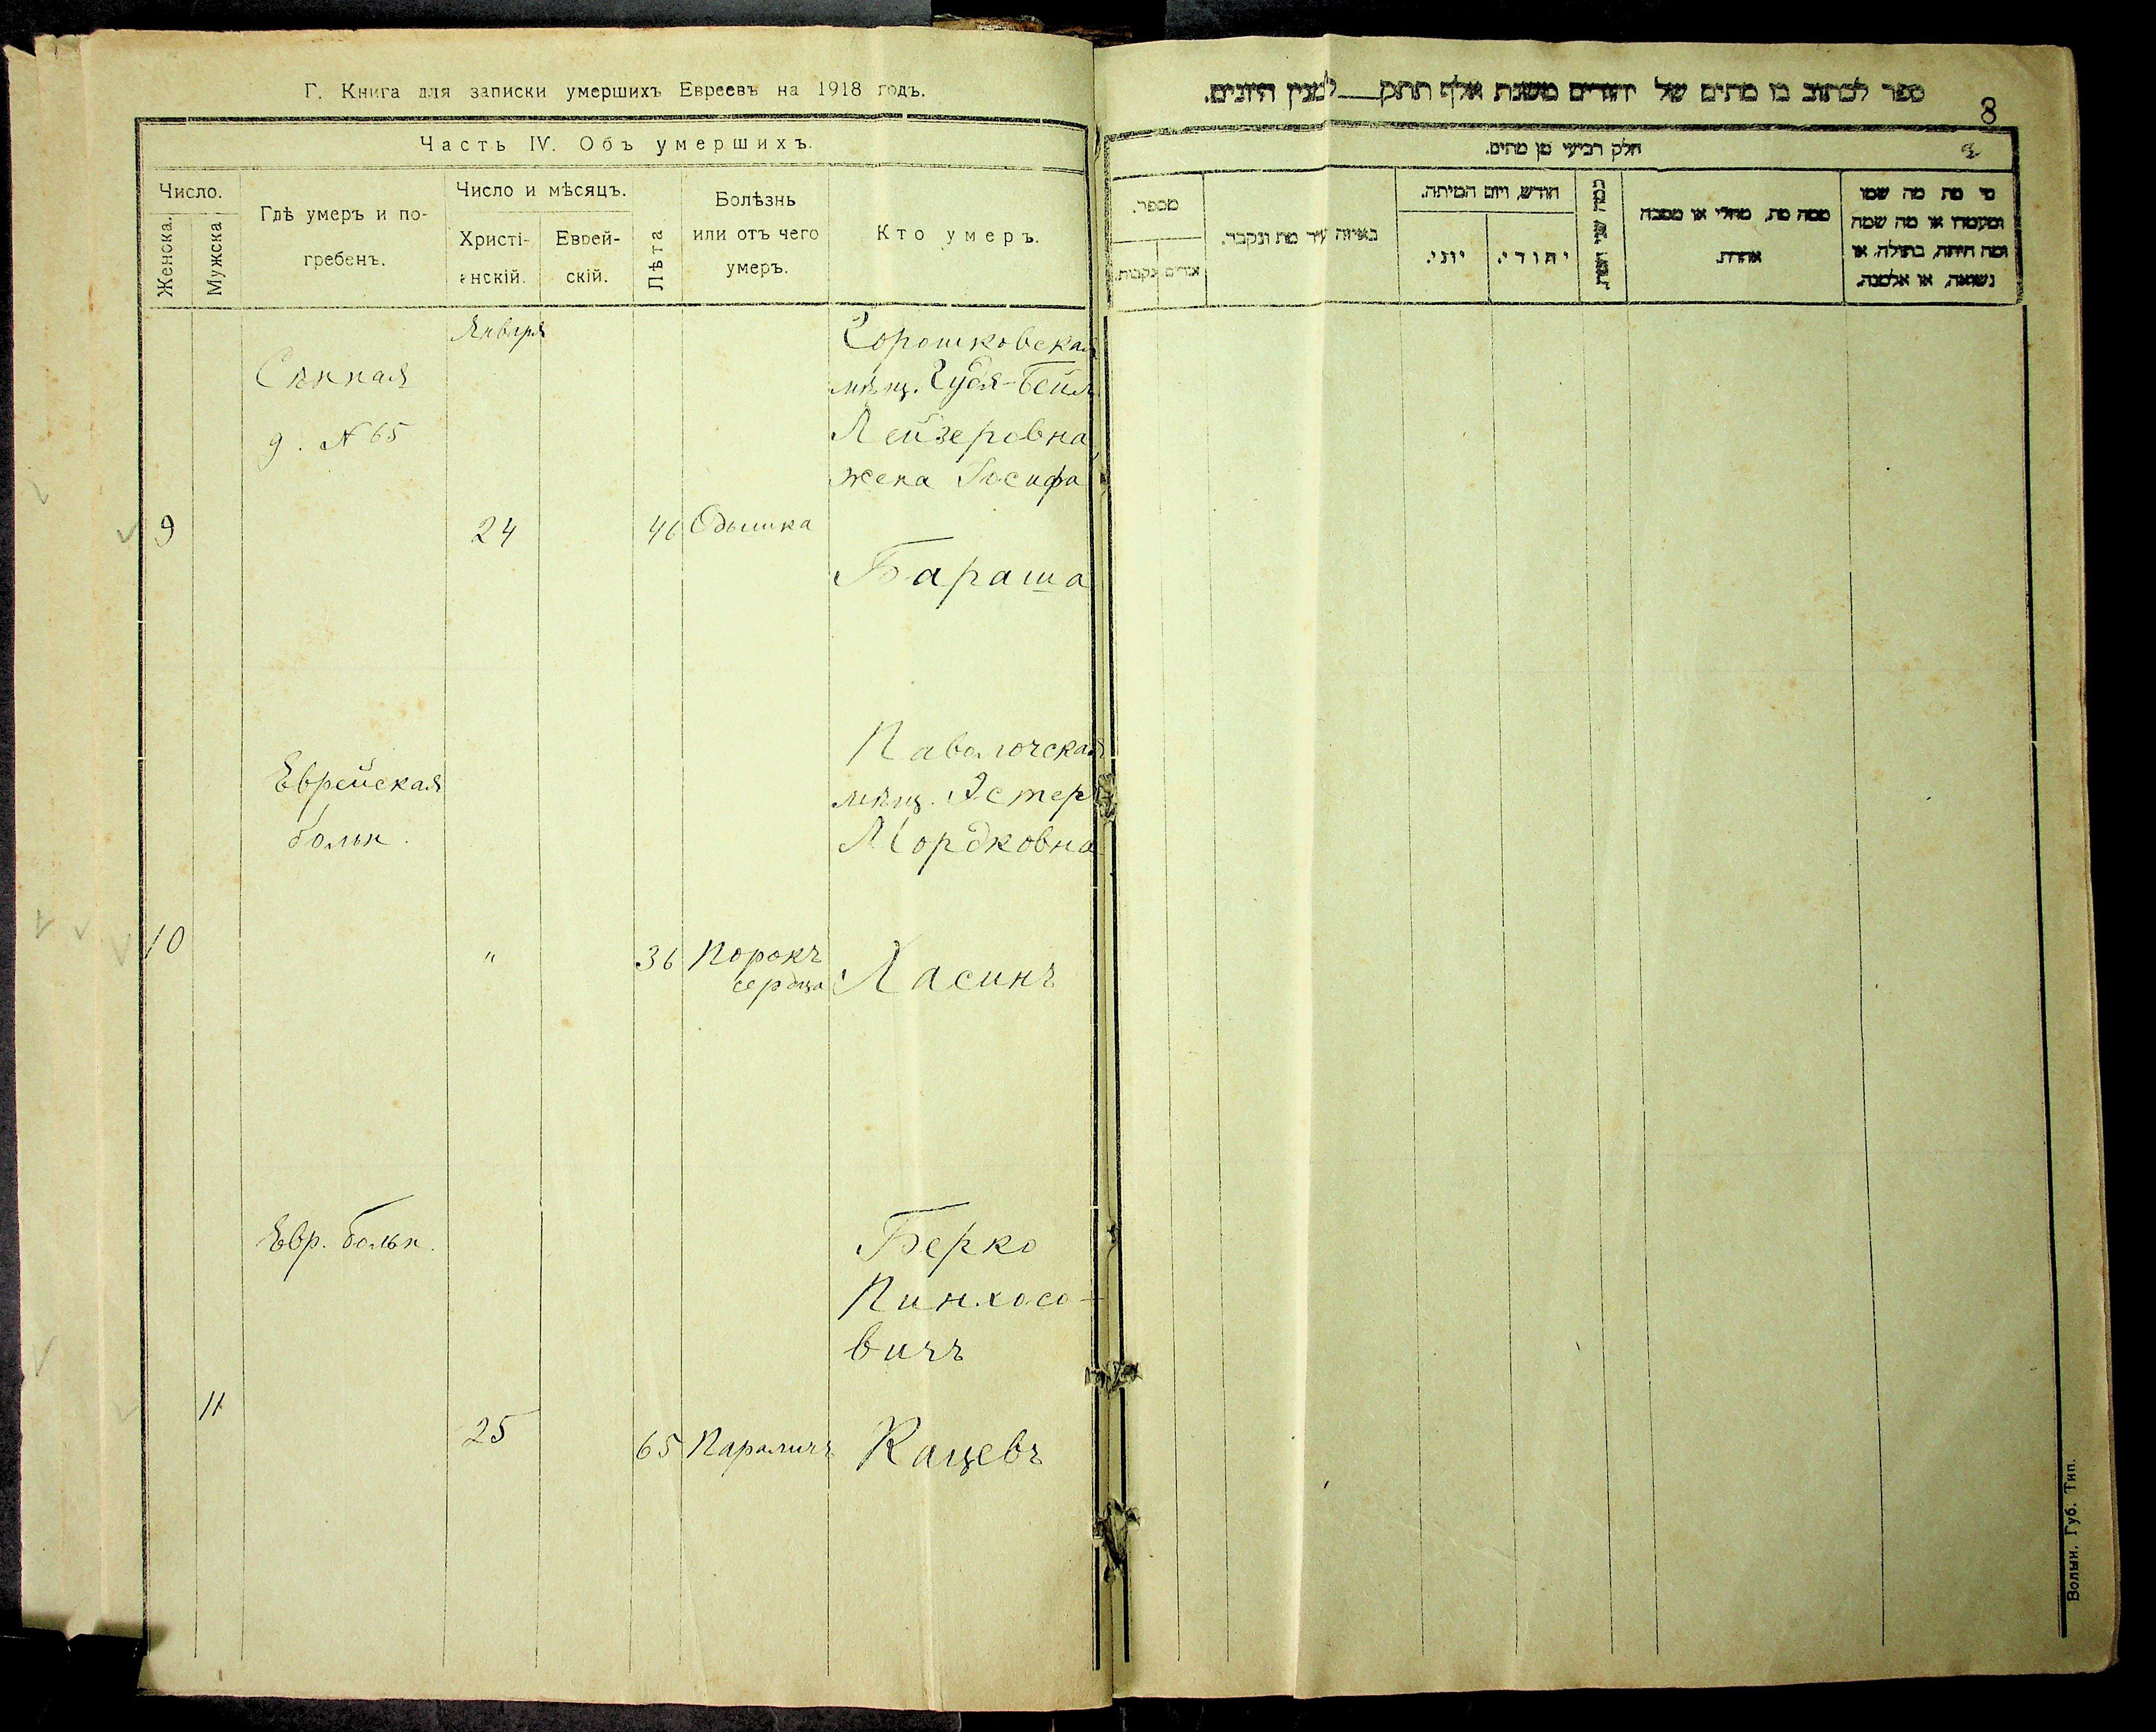 Г. Книга для записки умершихъ Евреевъ на 1918 годъ.
Часть IV. Объ умершихъ.
Число.
Женска.
Мужска
Гдѣ умеръ и по-
гребенъ.
Число и мѣсяцъ.
Христі-
анскій.
Еврей-
скій.
Лѣта
Болѣзнь
или отъ чего
умеръ.
Кто умеръ.
Января
Сѣнная
д. № 65
9
24
46
Одышка
Горошковская
мѣщ. Гудя-Бейла
Лейзеровна
жена Іосифа
Бараша
Еврейская
больн.
10
"
36
Порокъ
сердца
Паволочская
мѣщ. Эстер
Мордковна
Ласинъ
Евр. больн.
11
25
65
Параличъ
Берко
Пинхасо-
вичъ
Кацевъ
ספר לכתוב בו מתים של יהודים משנת אלף תתק___למנין היונים.
8
חלק רביעי מן מתים.
מספר.
נקבות.
באיזה עיר מת ונקבר.
חודש, ויום המיתה.
יוני.
יהודי.
ממה מת, מחלי או מסבה
אחרת.
מי מת מה שמו
ומעמדו או מה שמה
ומה היתה, בתולה, או
נשואה, או אלמנה.
Волын. Губ. Тип.